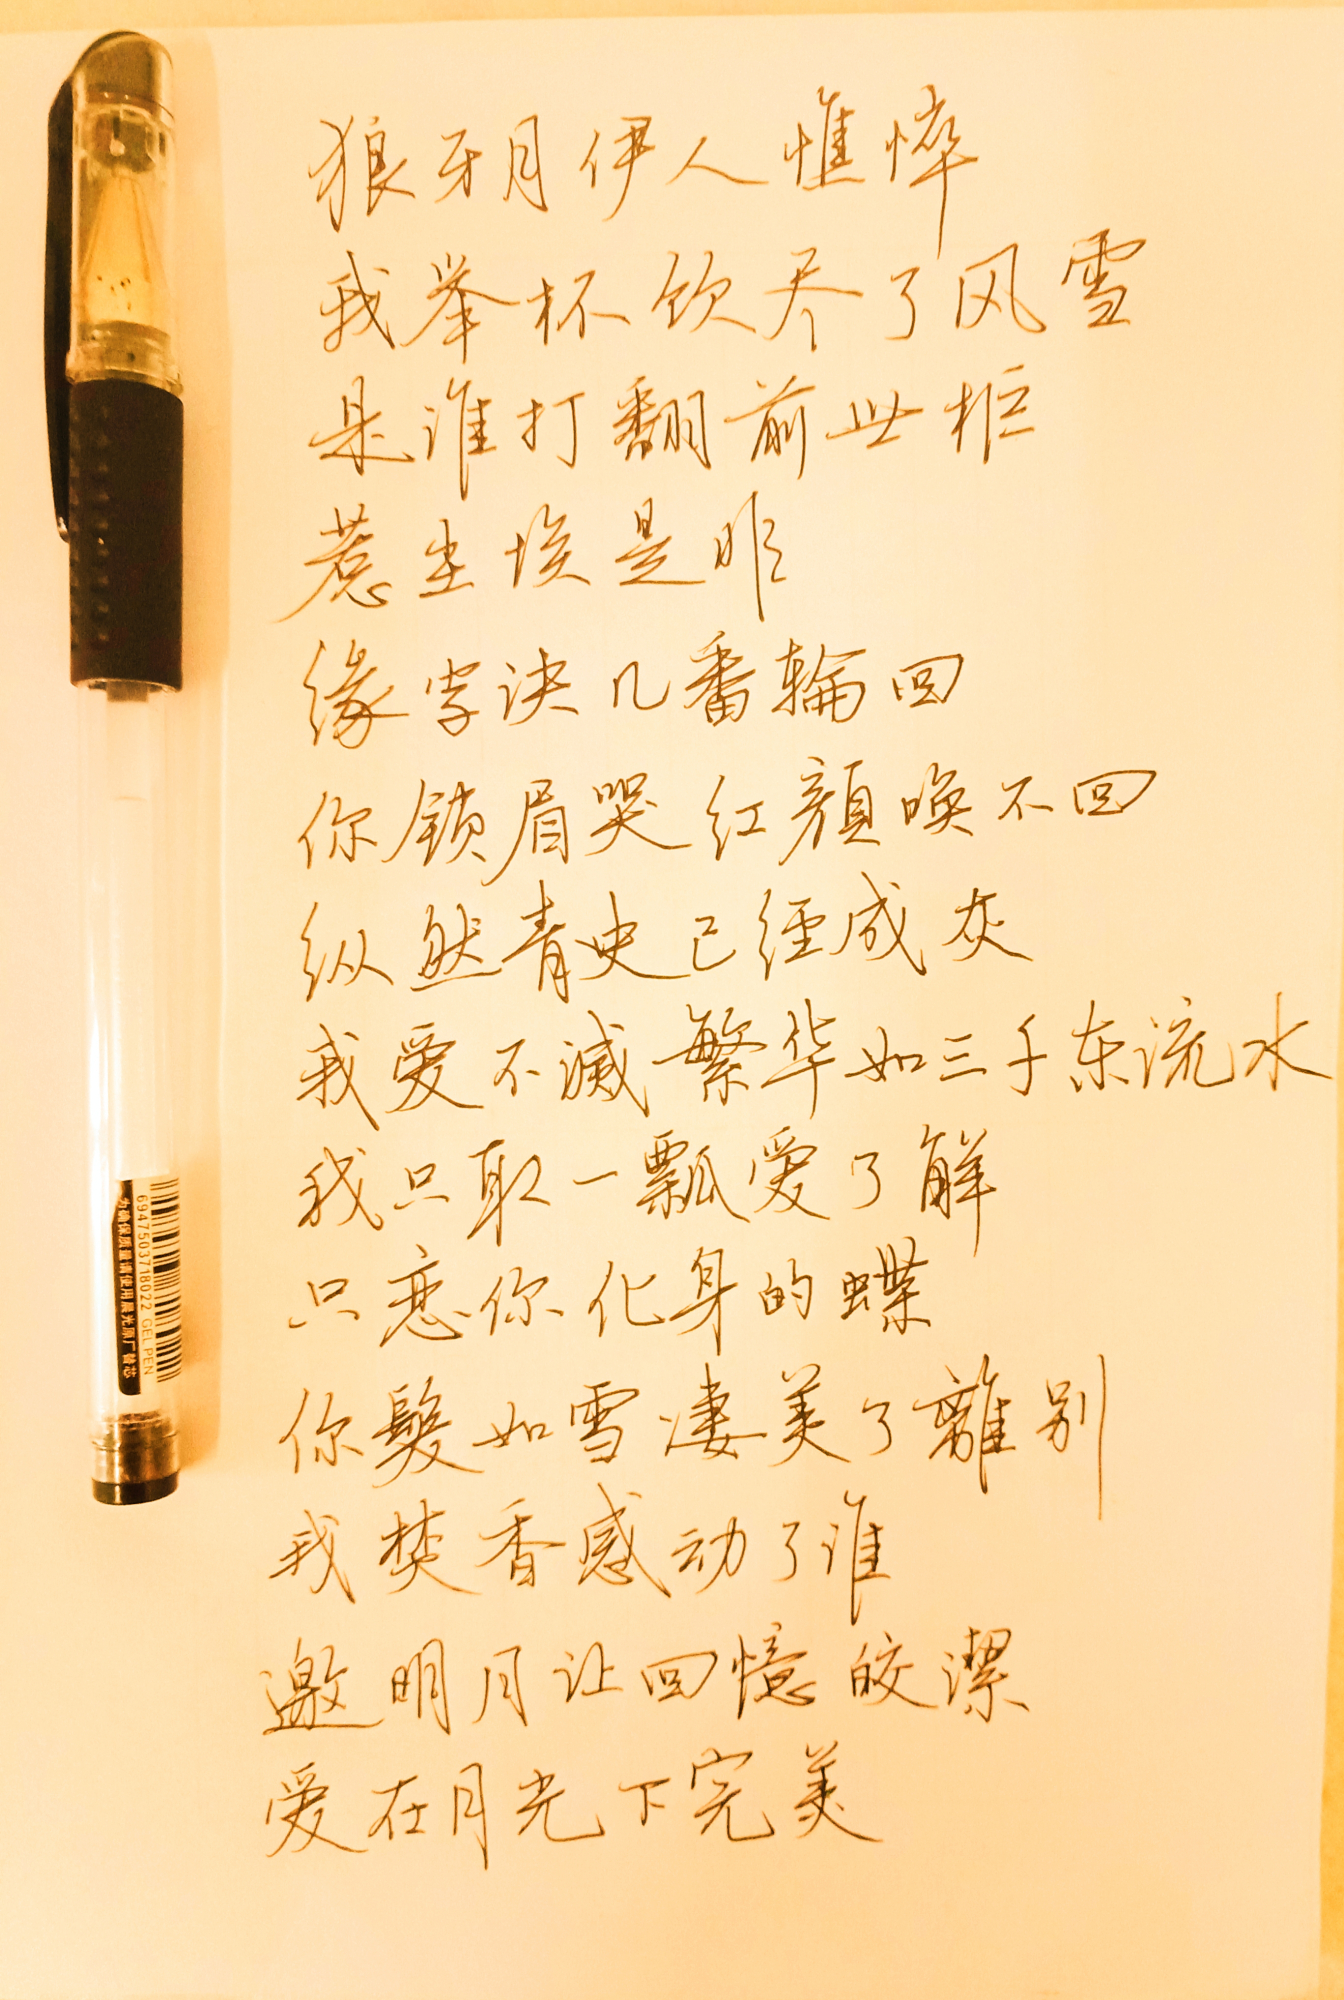 狼牙月伊人憔悴
我举杯饮尽了风雪
是谁打翻前世柜
惹尘埃是非
缘字诀几番輪回
你锁眉哭红顏唤不回
纵然青史已经成灰
我爱不滅繁华如三千东流水
我只取一瓢爱了解
只恋你化身的蝶
你髮如雪凄美了離别
我焚香感动了谁
邀明月让回憶皎潔
爱在月光下完美
6947503718022 GEL PEN
为确保质量请使用晨光原厂替芯